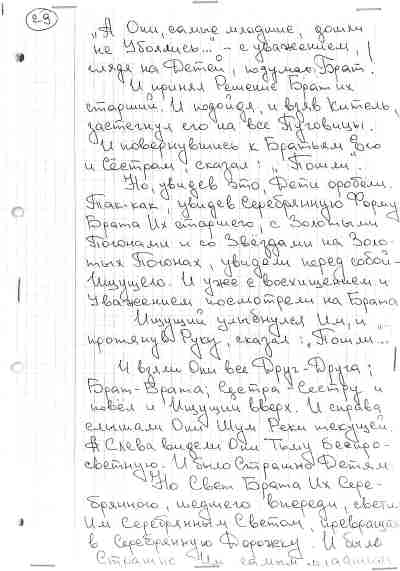 29
"А Они, самые младшие, дошли
не Убоялись..." – с уважением,
глядя на Детей, подумал Брат.
И принял Решение Брат их
старший. И подойдя, и взяв Китель,
застегнул его на все Пуговицы.
И повернувшись к Братьям Его
и Сёстрам, сказал: "Пошли".
Но, увидев это, Дети оробели.
Так-как, увидев Серебрянную Форму
Брата Их старшего, с Золотыми
Погонами и со Звёздами на Золо-
тых Погонах, увидели перед собой –
Ищущего. И уже с восхищением и
Уважением посмотрели на Брата
Ищущий улыбнулся Им, и
протянув Руку, сказал: "Пошли..."
И взяли Они все Друг-Друга;
Брат-Брата; Сестра-Сестру и
повёл и Ищущий вверх. И справа
слышали Они Шум Реки текущей.
А Слева видели Они Тьму Беспро-
светную. И было Страшно Детям.
Но Свет Брата Их Сере-
брянного, шедшего впереди, свети
Им Серебрянным Светом, превращая
в Серебрянную Дорожку. И было
Страшно Им самым младшим